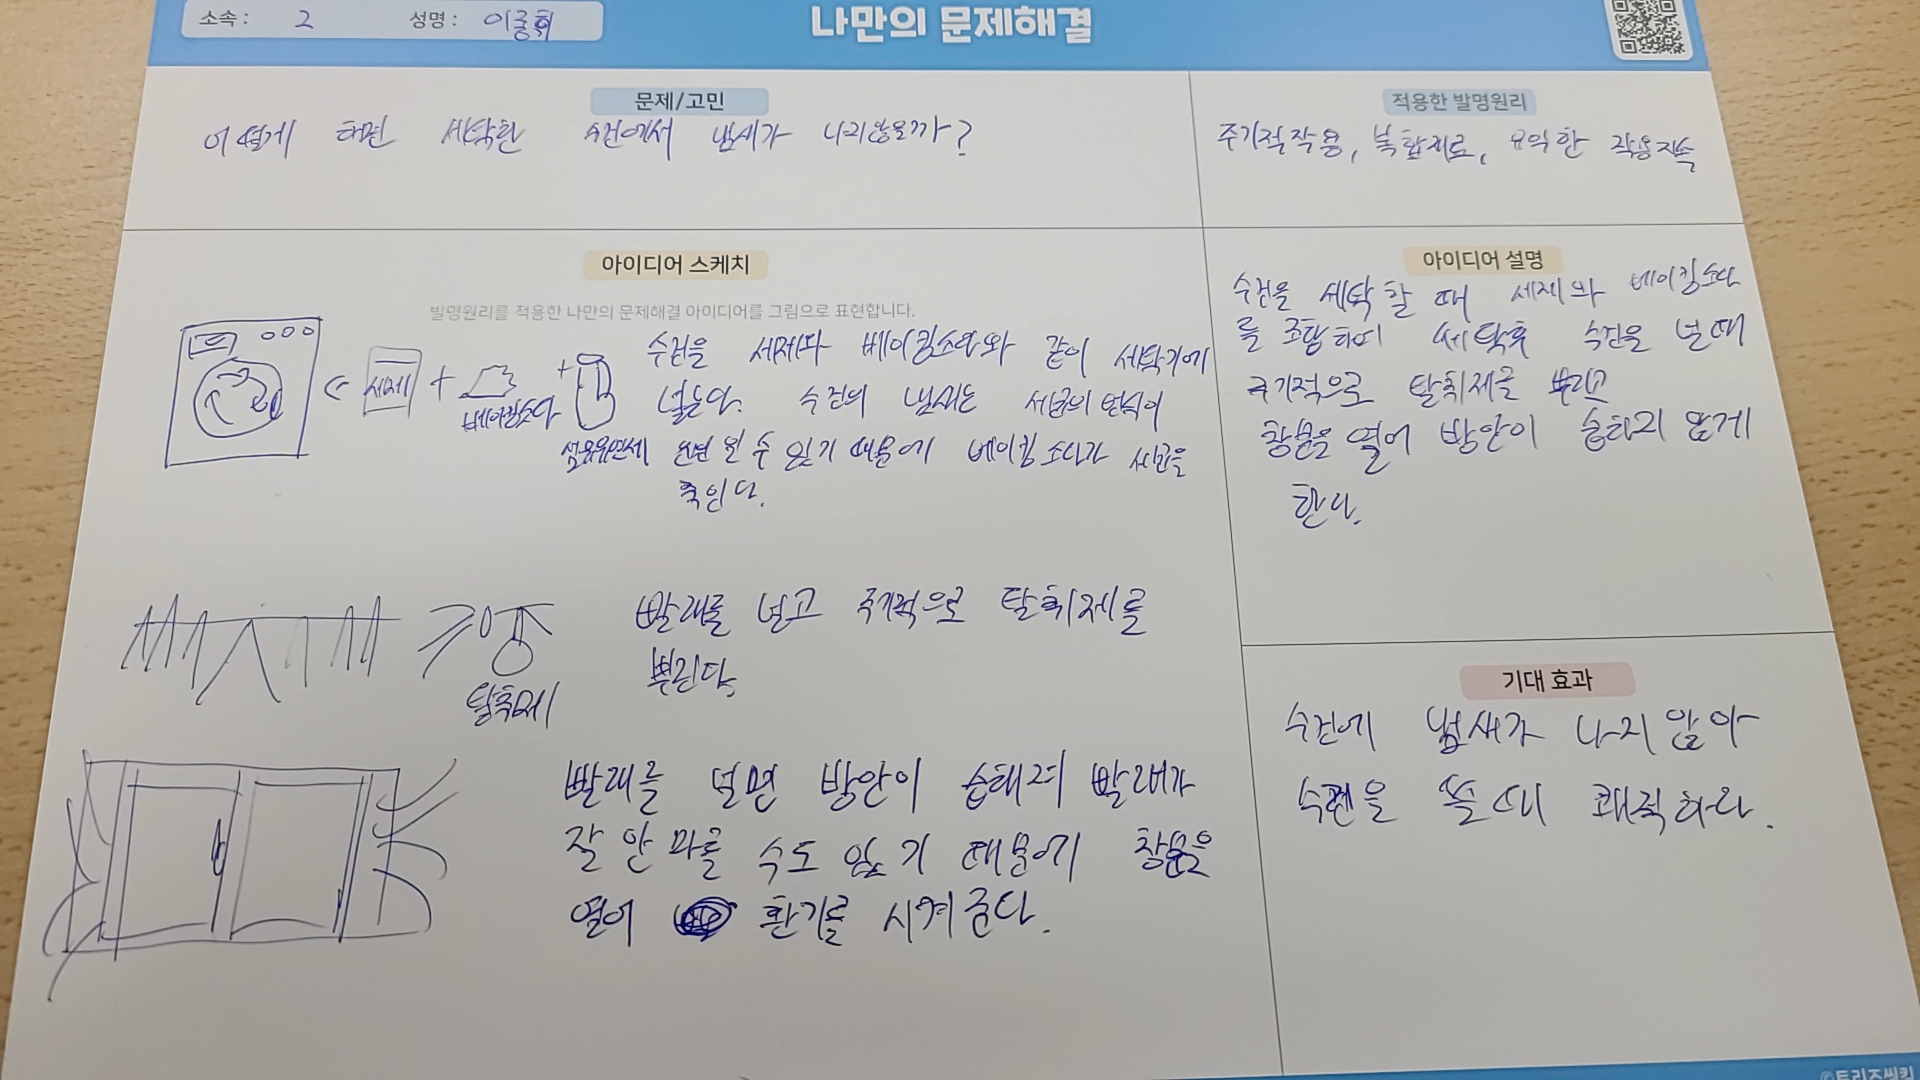 소속 : 2 성명 : 이중휘
나만의 문제해결
문제/고민
어떻게 하면 세탁한 수건에서 냄새가 나지않을까?
적용한 발명원리
주기적작용, 복합재료, 요악한 작용지속
아이디어 스케치
발명원리를 적용한 나만의 문제해결 아이디어를 그림으로 표현합니다.
세제 + 베이킹소다 + 섬유유연제
수건을 세제와 베이킹소다와 같이 세탁기에
넣는다. 수건의 냄새는 세균의 번식이
원인 일 수 있기 때문에 베이킹소다가 세균을
죽인다.
탈취제
빨래를 널고 주기적으로 탈취제를
뿌린다.
빨래를 널면 방안이 습해져 빨래가
잘 안 마를 수도 있기 때문에 창문을
열어 환기를 시켜준다.
아이디어 설명
수건을 세탁할 때 세제와 베이킹소다
를 조합하며 세탁후 수건을 널때
주기적으로 탈취제를 뿌리고
창문을 열어 방안이 습하지 않게
한다.
기대 효과
수건에 냄새가 나지않아
수건을 쓸때 쾌적하다.
©트리즈씽킹